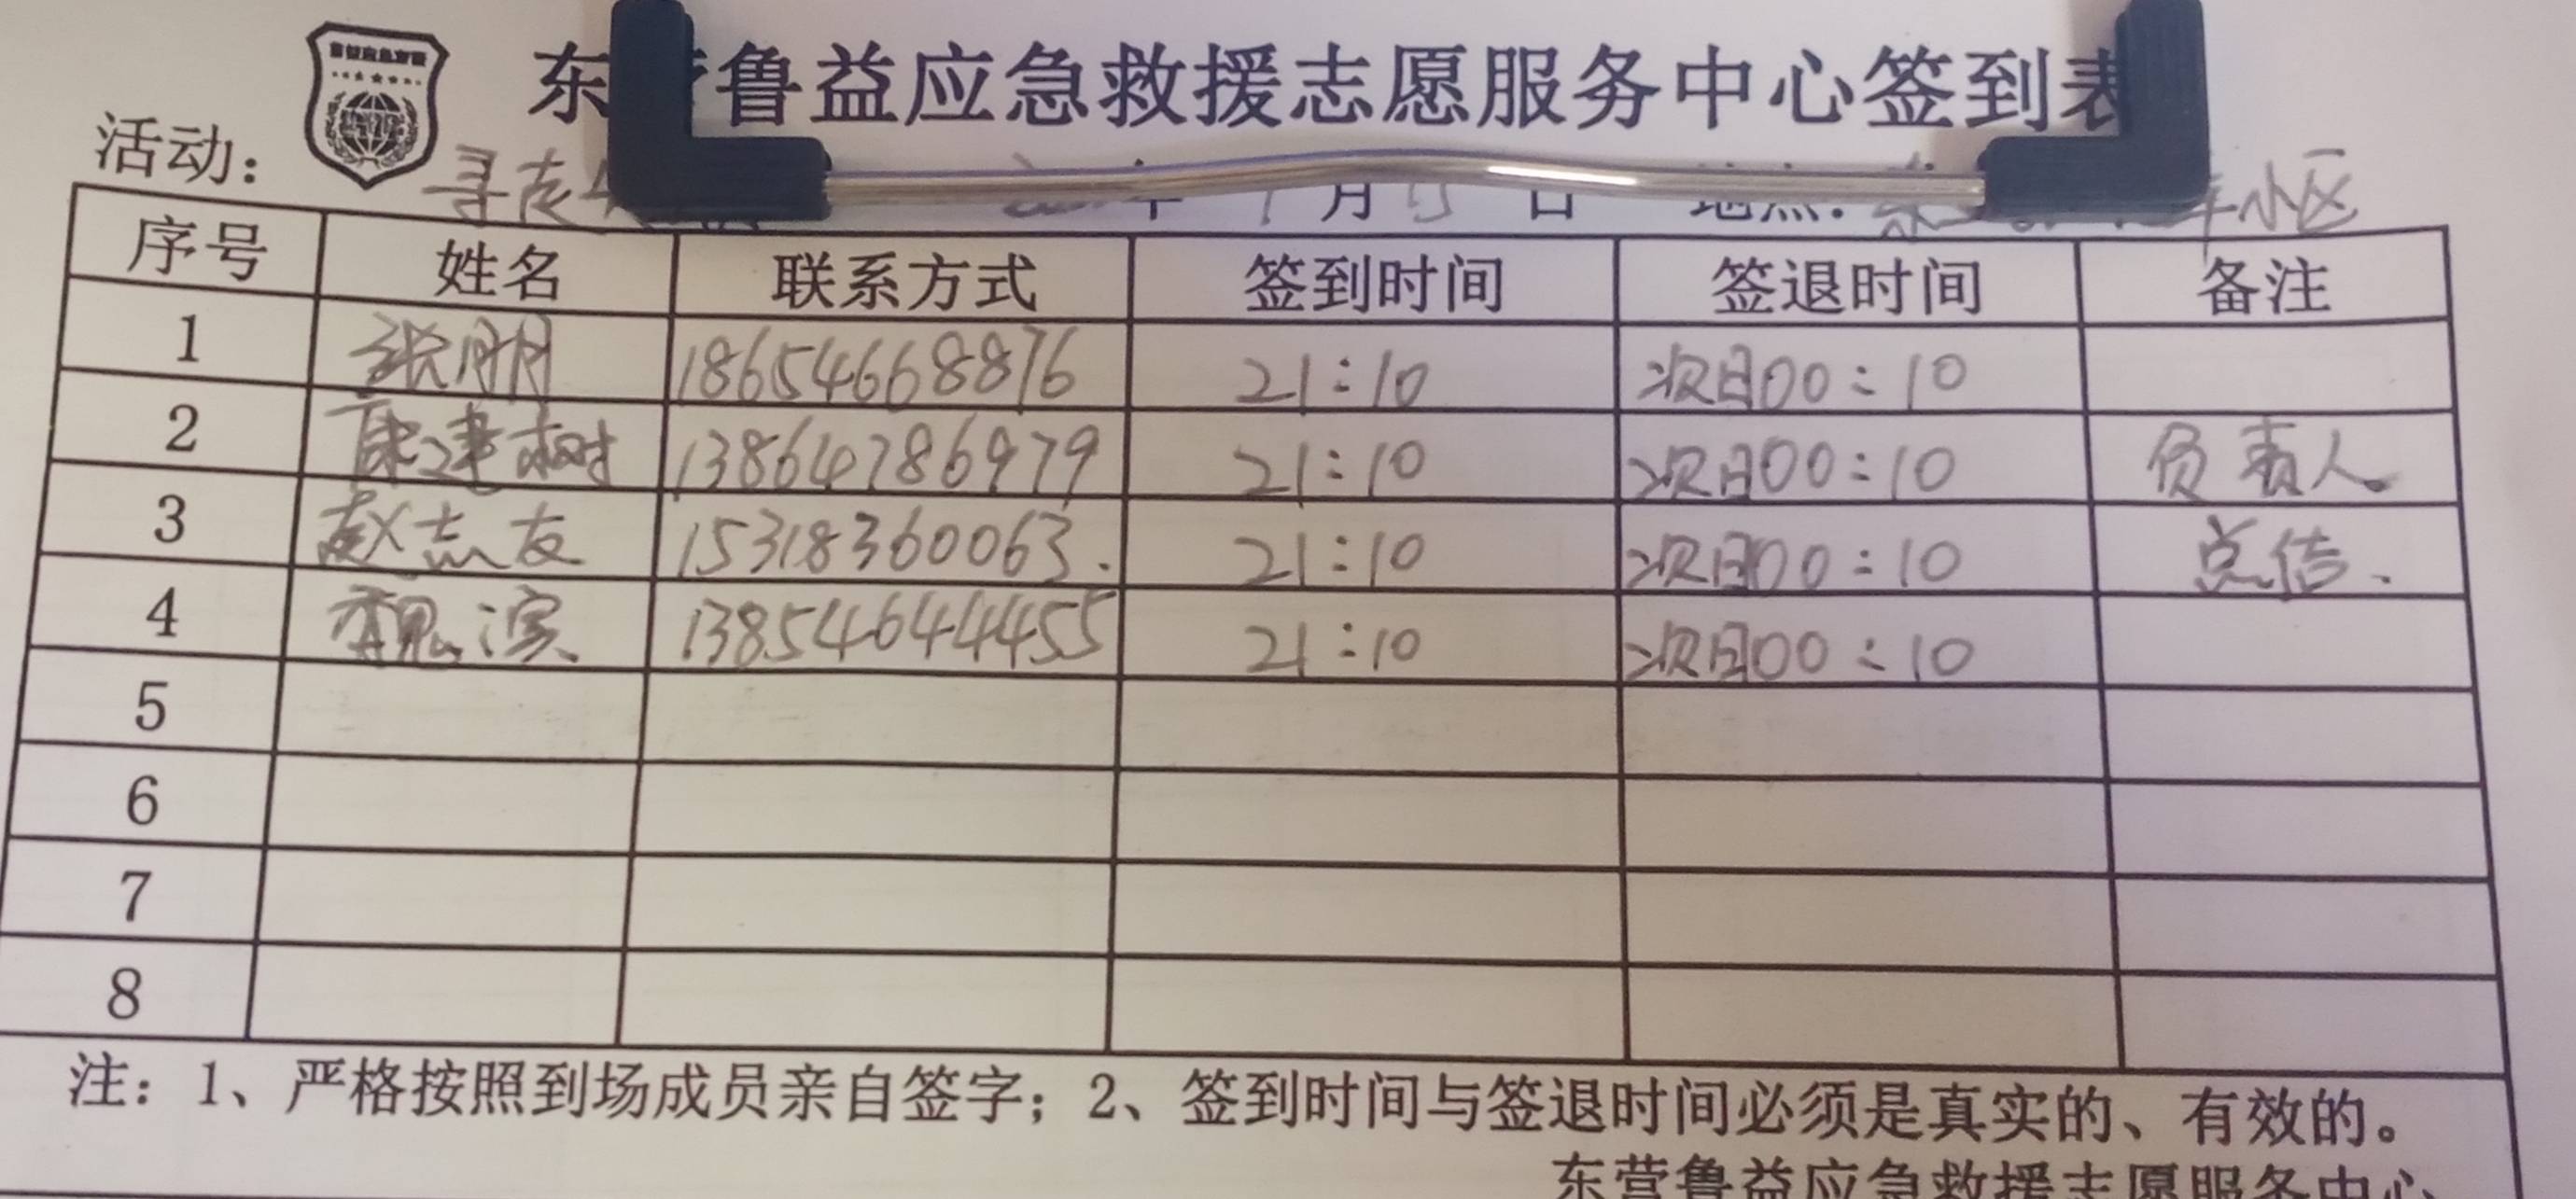 东营鲁益应急救援志愿服务中心签到表
活动： 寻走 年 月 日 地点： 小区
序号 姓名 联系方式 签到时间 签退时间 备注
1 张朋 18654668876 21:10 次日00:10
2 康建树 13864786979 21:10 次日00:10 负责人
3 赵志友 15318360063. 21:10 次日00:10 总结、
4 魏滨 13854644455 21:10 次日00:10
5
6
7
8
注：1、严格按照到场成员亲自签字；2、签到时间与签退时间必须是真实的、有效的。
东营鲁益应急救援志愿服务中心